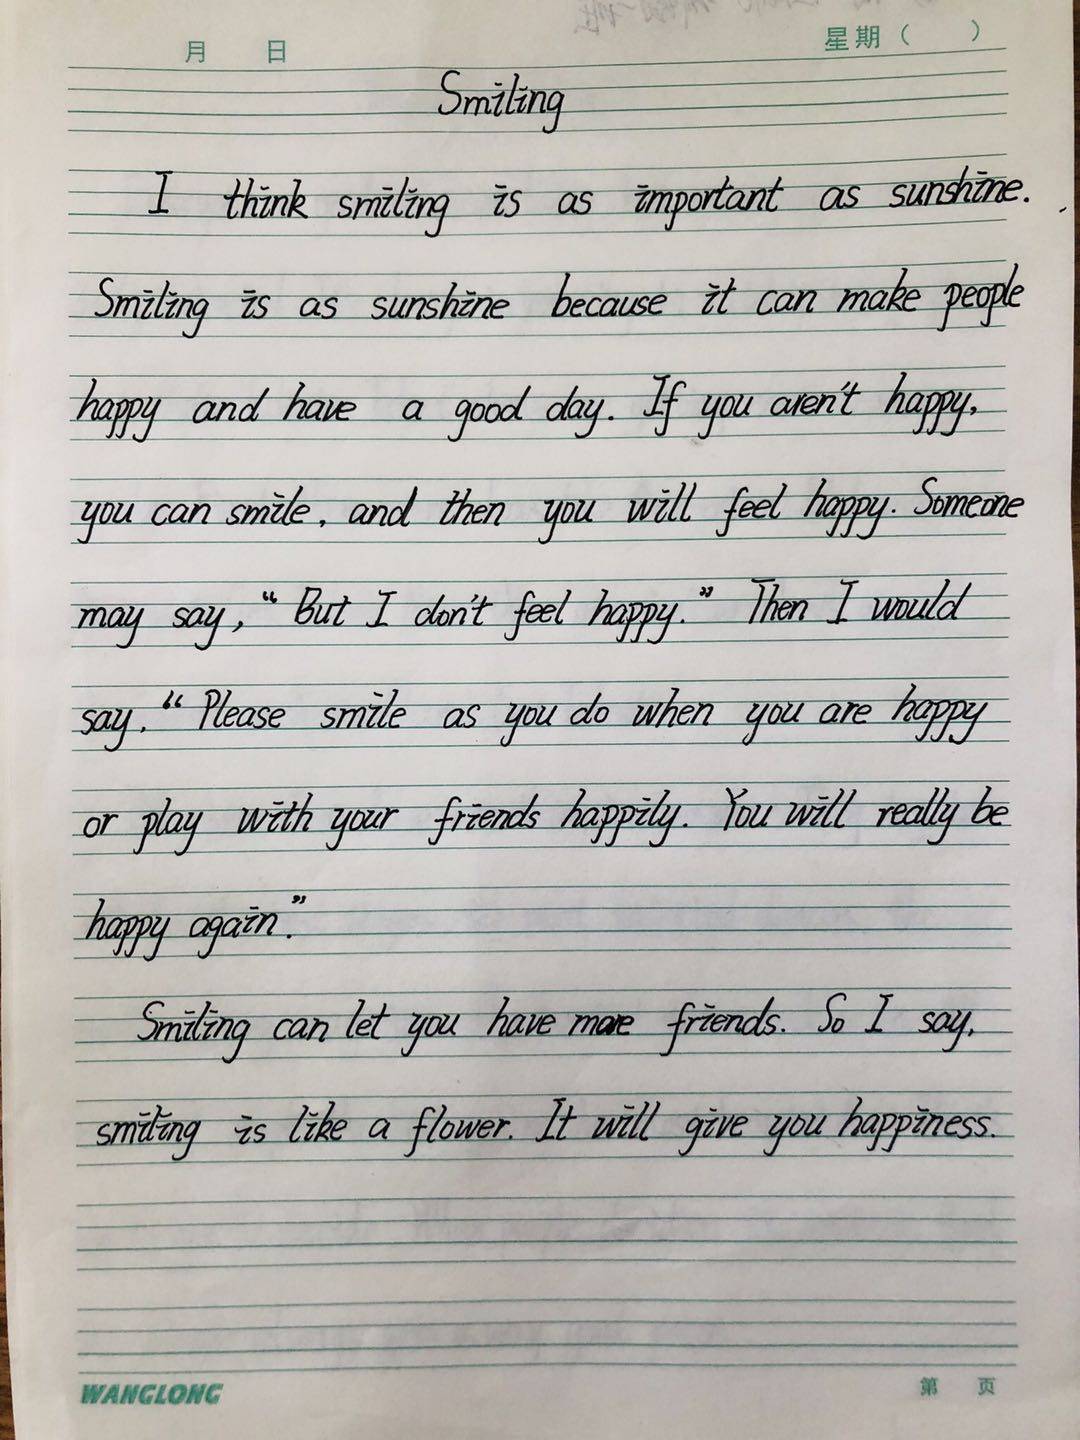 月 日 星期( )
Smiling
I think smiling is as important as sunshine.
Smiling is as sunshine because it can make people
happy and have a good day. If you aren't happy,
you can smile, and then you will feel happy. Someone
may say, “But I don't feel happy.” Then I would
say, “Please smile as you do when you are happy
or play with your friends happily. You will really be
happy again.”
Smiling can let you have more friends. So I say,
smiling is like a flower. It will give you happiness.
WANGLONG 第 页